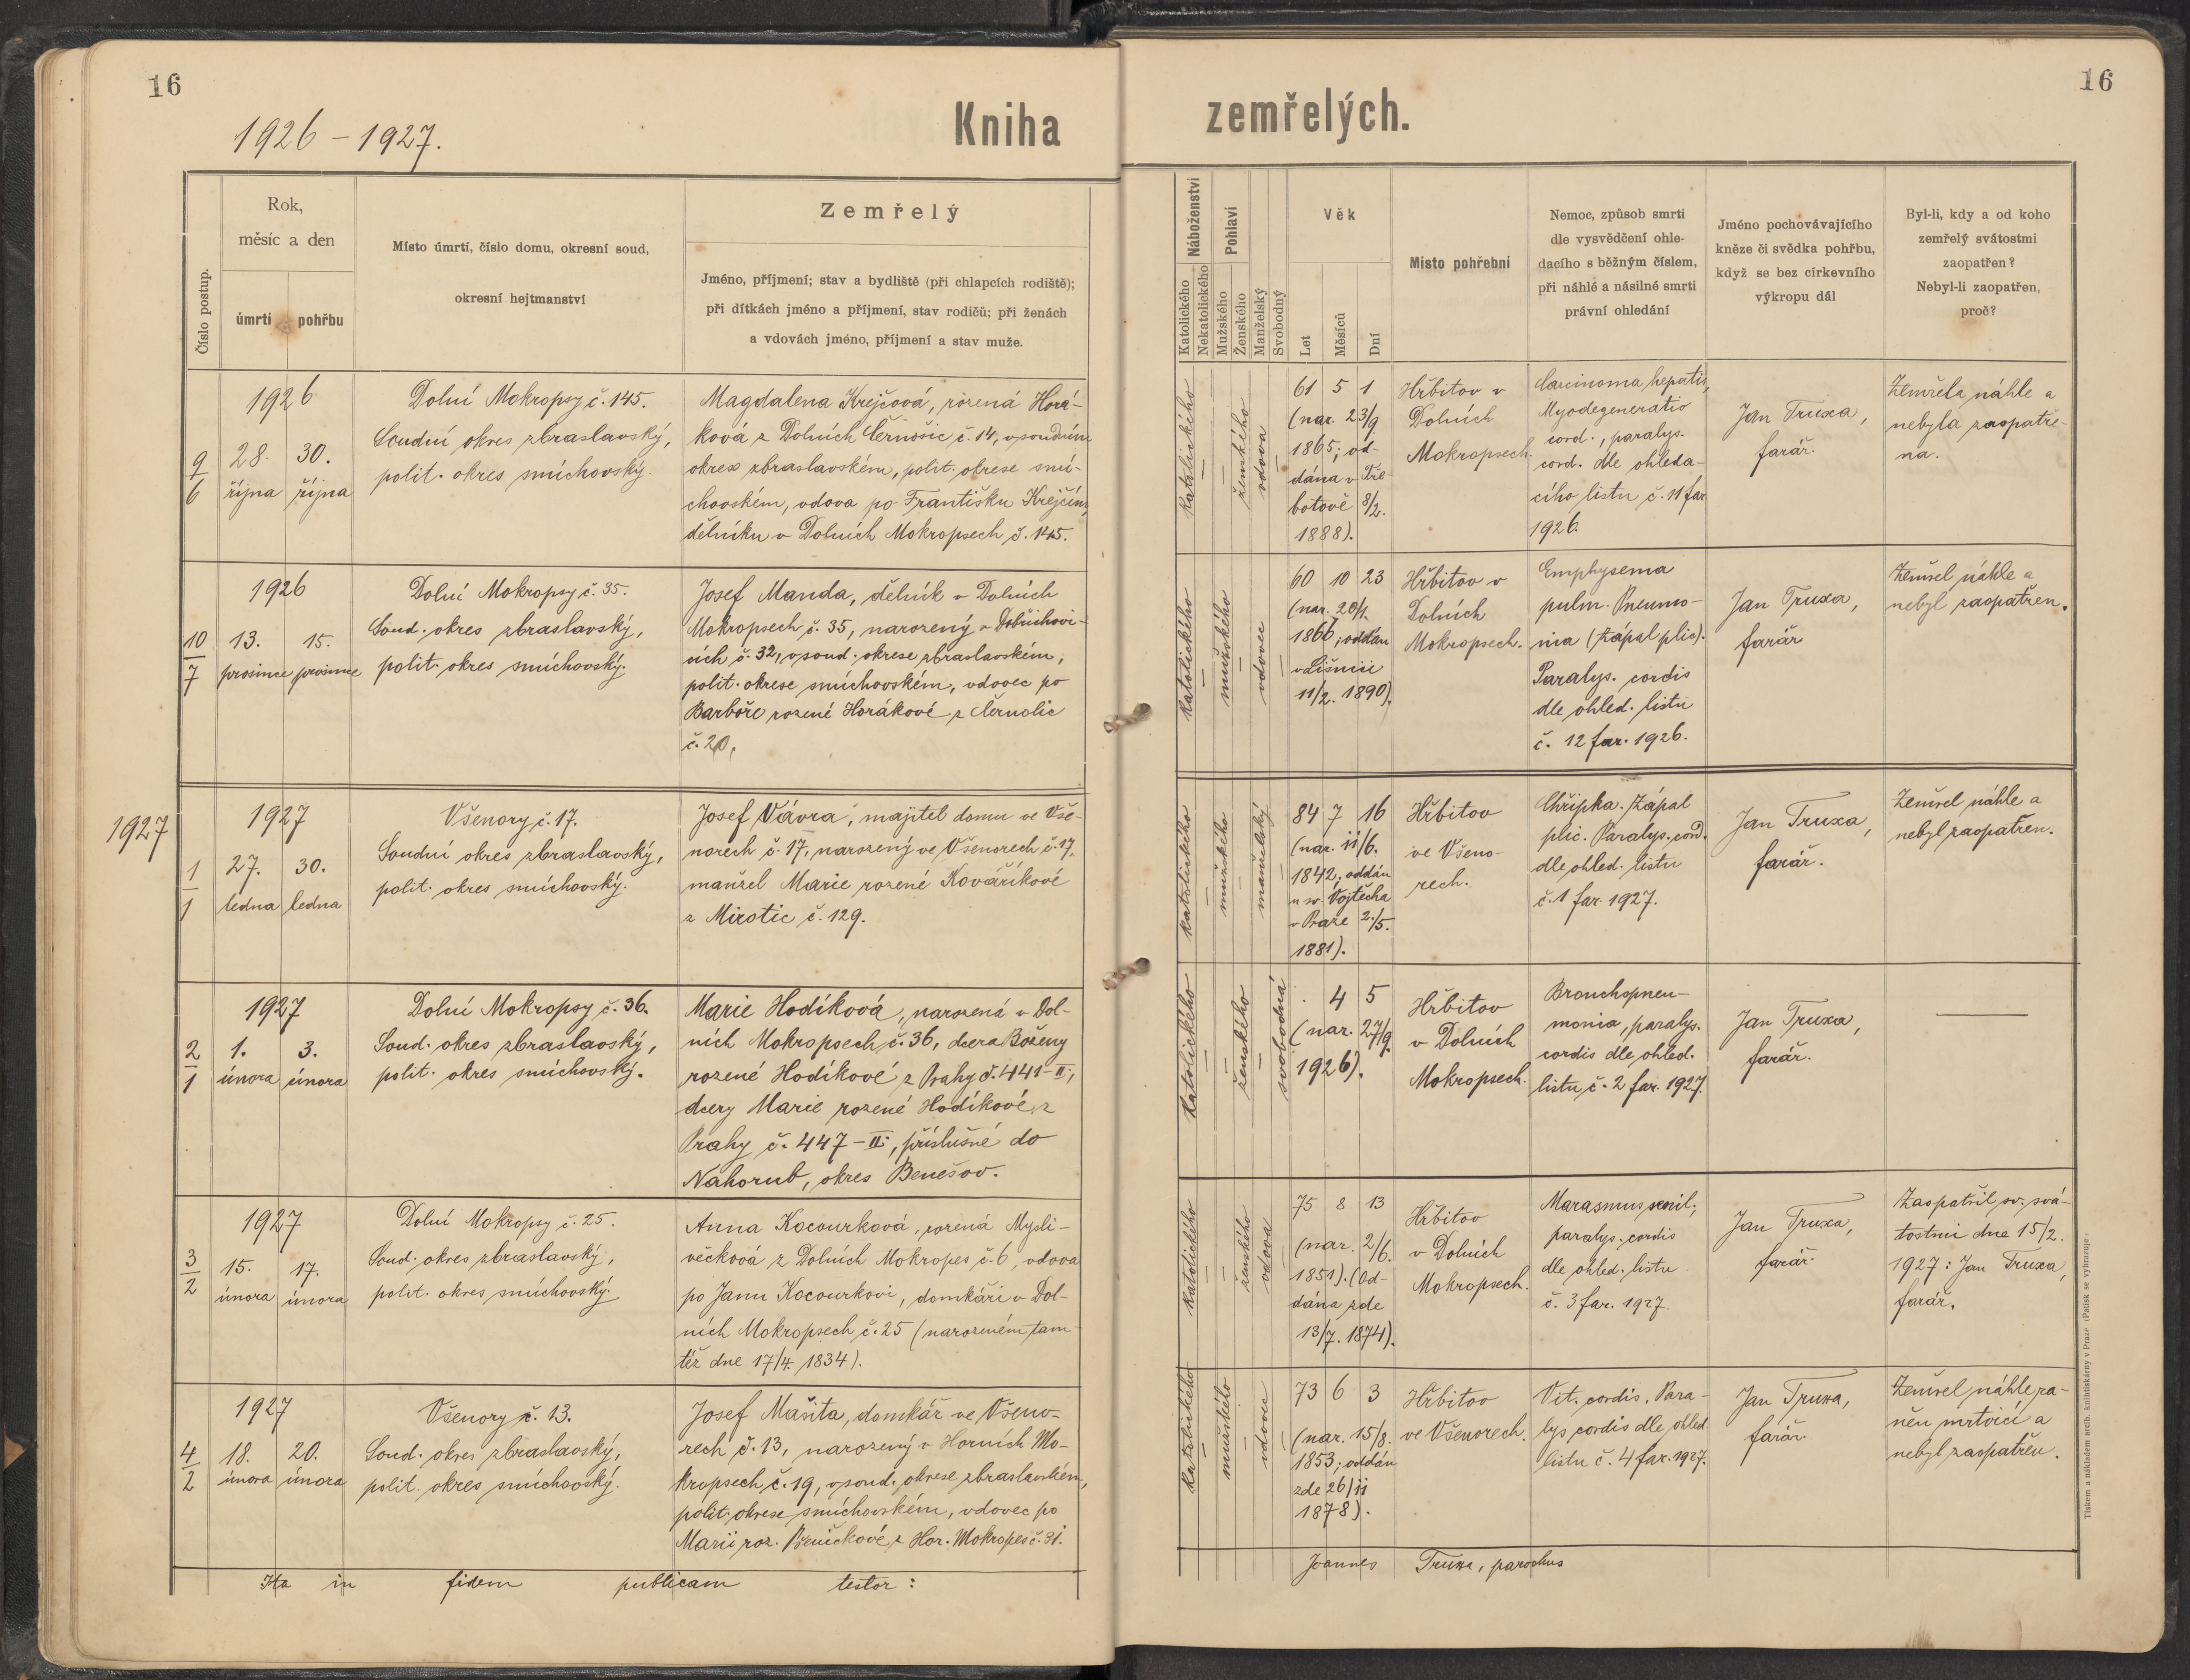 16
1926 – 1927.
Kniha
Číslo postup.
Rok,
měsíc a den
úmrtí pohřbu
Místo úmrtí, číslo domu, okresní soud,
okresní hejtmanství
Zemřelý
Jméno, příjmení; stav a bydliště (při chlapcích rodiště);
při dítkách jméno a příjmení, stav rodičů; při ženách
a vdovách jméno, příjmení a stav muže.
9
6
1926
28. 30.
října října
Dolní Mokropsy č. 145.
Soudní okres zbraslavský,
polit. okres smíchovský.
Magdalena Krejčová, rozená Horá-
ková z Dolních Černošic č. 14, v soudním
okrese zbraslavském, polit. okrese smí-
chovském, vdova po Františku Krejčím,
dělníku v Dolních Mokropsech č. 145.
10
7
1926
13. 15.
prosince prosince
Dolní Mokropsy č. 35.
Soud. okres zbraslavský,
polit. okres smíchovský.
Josef Manda, dělník v Dolních
Mokropsech č. 35, narozený v Dobřichovi-
cích č. 32, v soud. okrese zbraslavském,
polit. okrese smíchovském, vdovec po
Barboře rozené Horákové z Černolic
č. 20.
1927
1
1
1927
27. 30.
ledna ledna
Všenory č. 17.
Soudní okres zbraslavský,
polit. okres smíchovský.
Josef Vávra, majitel domu ve Vše-
norech č. 17, narozený ve Všenorech č. 17,
manžel Marie rozené Kovaříkové
z Mirotic č. 129.
2
1
1927
1. 3.
února února
Dolní Mokropsy č. 36.
Soud. okres zbraslavský,
polit. okres smíchovský.
Marie Hodíková, narozená v Dol-
ních Mokropsech č. 36, dcera Boženy
rozené Hodíkové z Prahy č. 441–II,
dcery Marie rozené Hodíkové z
Prahy č. 447–II, příslušné do
Nahorub, okres Benešov.
3
2
1927
15. 17.
února února
Dolní Mokropsy č. 25.
Soud. okres zbraslavský,
polit. okres smíchovský.
Anna Kocourková, rozená Mysli-
večková z Dolních Mokropes č. 6, vdova
po Janu Kocourkovi, domkáři v Dol-
ních Mokropsech č. 25 (narozeném tam-
též dne 17/4. 1834).
4
2
1927
18. 20.
února února
Všenory č. 13.
Soud. okres zbraslavský,
polit. okres smíchovský.
Josef Mašita, domkář ve Všeno-
rech č. 13, narozený v Horních Mo-
kropsech č. 19, v soud. okrese zbraslavském,
polit. okrese smíchovském, vdovec po
Marii roz. Pšeničkové z Hor. Mokropes č. 31.
Ita in fidem publicam testor:
16
zemřelých.
Náboženství
Katolického
Nekatolického
Pohlaví
Mužského
Ženského
Manželský
Svobodný
Věk
Let
Měsíců
Dní
Místo pohřební
Nemoc, způsob smrti
dle vysvědčení ohle-
dacího s běžným číslem,
při náhlé a násilné smrti
právní ohledání
Jméno pochovávajícího
kněze či svědka pohřbu,
když se bez církevního
výkropu dál
Byl-li, kdy a od koho
zemřelý svátostmi
zaopatřen?
Nebyl-li zaopatřen,
proč?
katolického
ženského
vdova
61 5 1
(nar. 23/9
1865; od-
dána v Tře-
botově 8/2.
1888).
Hřbitov v
Dolních
Mokropsech.
Carcinoma hepatis,
Myodegeneratio
cord., paralys.
cord. dle ohleda-
cího listu č. 11 far.
1926.
Jan Truxa,
farář.
Zemřela náhle a
nebyla zaopatře-
na.
katolického
mužského
vdovec
60 10 23
(nar. 20/1.
1866; oddán
v Líšnici
11/2. 1890).
Hřbitov v
Dolních
Mokropsech.
Emphysema
pulm. Pneumo-
nia (zápal plic).
Paralys. cordis
dle ohled. listu
č. 12 far. 1926.
Jan Truxa,
farář
Zemřel náhle a
nebyl zaopatřen.
katolického
mužského
manželský
84 7 16
(nar. 11/6.
1842; oddán
u sv. Vojtěcha
v Praze 2./5.
1881).
Hřbitov
ve Všeno-
rech.
Chřipka. Zápal
plic. Paralys. cord.
dle ohled. listu
č. 1 far. 1927.
Jan Truxa,
farář.
Zemřel náhle a
nebyl zaopatřen.
katolického
ženského
svobodná
. 4 5
(nar. 27/9.
1926).
Hřbitov
v Dolních
Mokropsech.
Bronchopneu-
monia, paralys.
cordis dle ohled.
listu č. 2 far. 1927.
Jan Truxa,
farář.
katolického
ženského
vdova
75 8 13
(nar. 2/6.
1851). (Od-
dána zde
13/7. 1874).
Hřbitov
v Dolních
Mokropsech.
Marasmus senil;
paralys. cordis
dle ohled. listu
č. 3 far. 1927.
Jan Truxa,
farář.
Zaopatřil sv. svá-
tostmi dne 15/2.
1927: Jan Truxa,
farář.
katolického
mužského
vdovec
73 6 3
(nar. 15/8.
1853; oddán
zde 26/11
1878).
Hřbitov
ve Všenorech.
Vit. cordis. Para-
lys cordis dle ohled.
listu č. 4 far. 1927.
Jan Truxa,
farář
Zemřel náhle ra-
něn mrtvicí a
nebyl zaopatřen.
Joannes Truxa, parochus
Tiskem a nákladem arcib. knihtiskárny v Praze (Patisk se vyhrazuje)